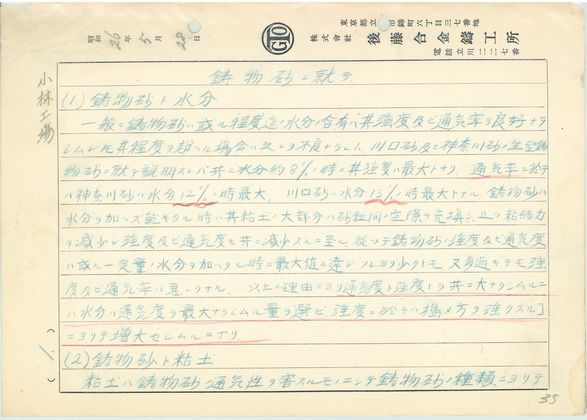 昭和26年5月28日
東京都立川市錦町六丁目三七番地
株式會社 後藤合金鑄工所
電話立川二二二七番
小林工場
鋳物砂ニ就テ
(1) 鋳物砂ト水分
一般ニ鋳物砂ハ或ル程度迄ノ水分ノ含有ハ其強度及ビ通気率ヲ良好ナラ
シムレ共其程度ヲ超ヘル場合ハ之レヲ不良ナラシム 川口砂及神奈川砂ノ生型鋳
物砂ニ就テ説明スレバ共ニ水分約8%ノ時ハ其強度ハ最大トナリ、通気率ニ於テ
ハ神奈川砂ハ水分12%ノ時最大、川口砂ハ水分13%ノ時最大トナル 鋳物砂ハ
水分ヲ加ヘズ乾キタル時ハ其粘土ノ大部分ハ砂粒間ノ空隙ヲ充填シ 粘結力
ヲ減少シ強度及ビ通気度モ共ニ減少スルニ至ル 従ツテ鋳物砂ノ強度及ビ通気度
ハ或ル一定量ノ水分ヲ加ヘタル時ニ最大値ニ達シ ソレヨリ少クトモ、又多過ギテモ強
度及ビ通気率ハ悪クナル、以上ノ理由ニヨリ通気度ト強度トヲ共ニ大ナラシムルニ
ハ水分ハ通気度ヲ最大ナラシムル量ヲ選ビ、強度ニ於テハ搗メ方ヲ強クスル
ニヨリテ増大セシムルニアリ
(2) 鋳物砂ト粘土
粘土ハ鋳物砂ノ通気性ヲ害スルモノニシテ鋳物砂ノ種類ニヨリテ
( 1. )
35